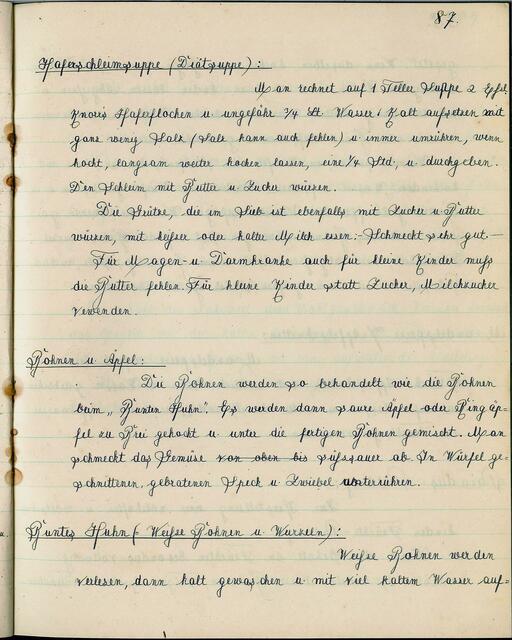 87.
Haferschleimsuppe (Diätsuppe):
Man rechnet auf 1 Teller Suppe 2 Eßl.
Knorrs Haferflocken u. ungefähr 3/4 Lt. Wasser. Kalt aufsetzen mit
ganz wenig Salz (Salz kann auch fehlen) u. immer umrühren, wenn
kocht, langsam weiter kochen lassen, eine 1/4 Std., u. durchgeben.
Den Schleim mit Butter u. Zucker würzen.
Die Grütze, die im Sieb ist ebenfalls mit Zucker u. Butter
würzen, mit heißer oder kalter Milch essen: - Schmeckt sehr gut. -
Für Magen- u. Darmkranke auch für kleine Kinder muß
die Butter fehlen. Für kleine Kinder statt Zucker, Milchzucker
verwenden.
Bohnen u. Äpfel:
Die Bohnen werden so behandelt wie die Bohnen
beim „Bunten Huhn". Es werden dann saure Äpfel oder Ringäp-
fel zu Brei gekocht u. unter die fertigen Bohnen gemischt. Man
schmeckt das Gemüse von oben bis süßsauer ab. In Würfel ge-
schnittenen, gebratenen Speck u. Zwiebel unterrühren.
Buntes Huhn (Weiße Bohnen u. Wurzeln):
Weiße Bohnen werden
verlesen, dann kalt gewaschen u. mit viel kaltem Wasser auf-